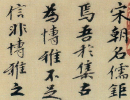 宋朝名儒鉅
焉吾於集古
為博雅不足
信非博雅之